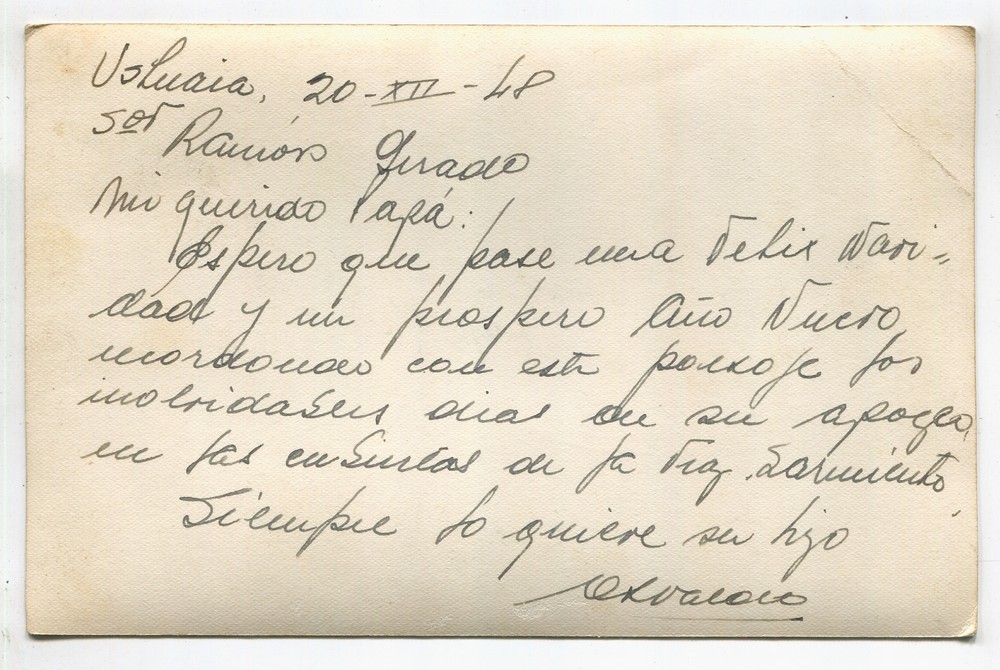 Ushuaia, 20-XII-48
Sor
Ramón Girado
Mi querido Papá:
Espero que pase una Felix Navi=
dad y un prospero Año Nuevo,
recordando con este paisaje los
inolvidables dias de su apogeo,
en las cubiertas de la Frag. Sarmiento,
Siempre lo quiere su hijo
Osvaldo